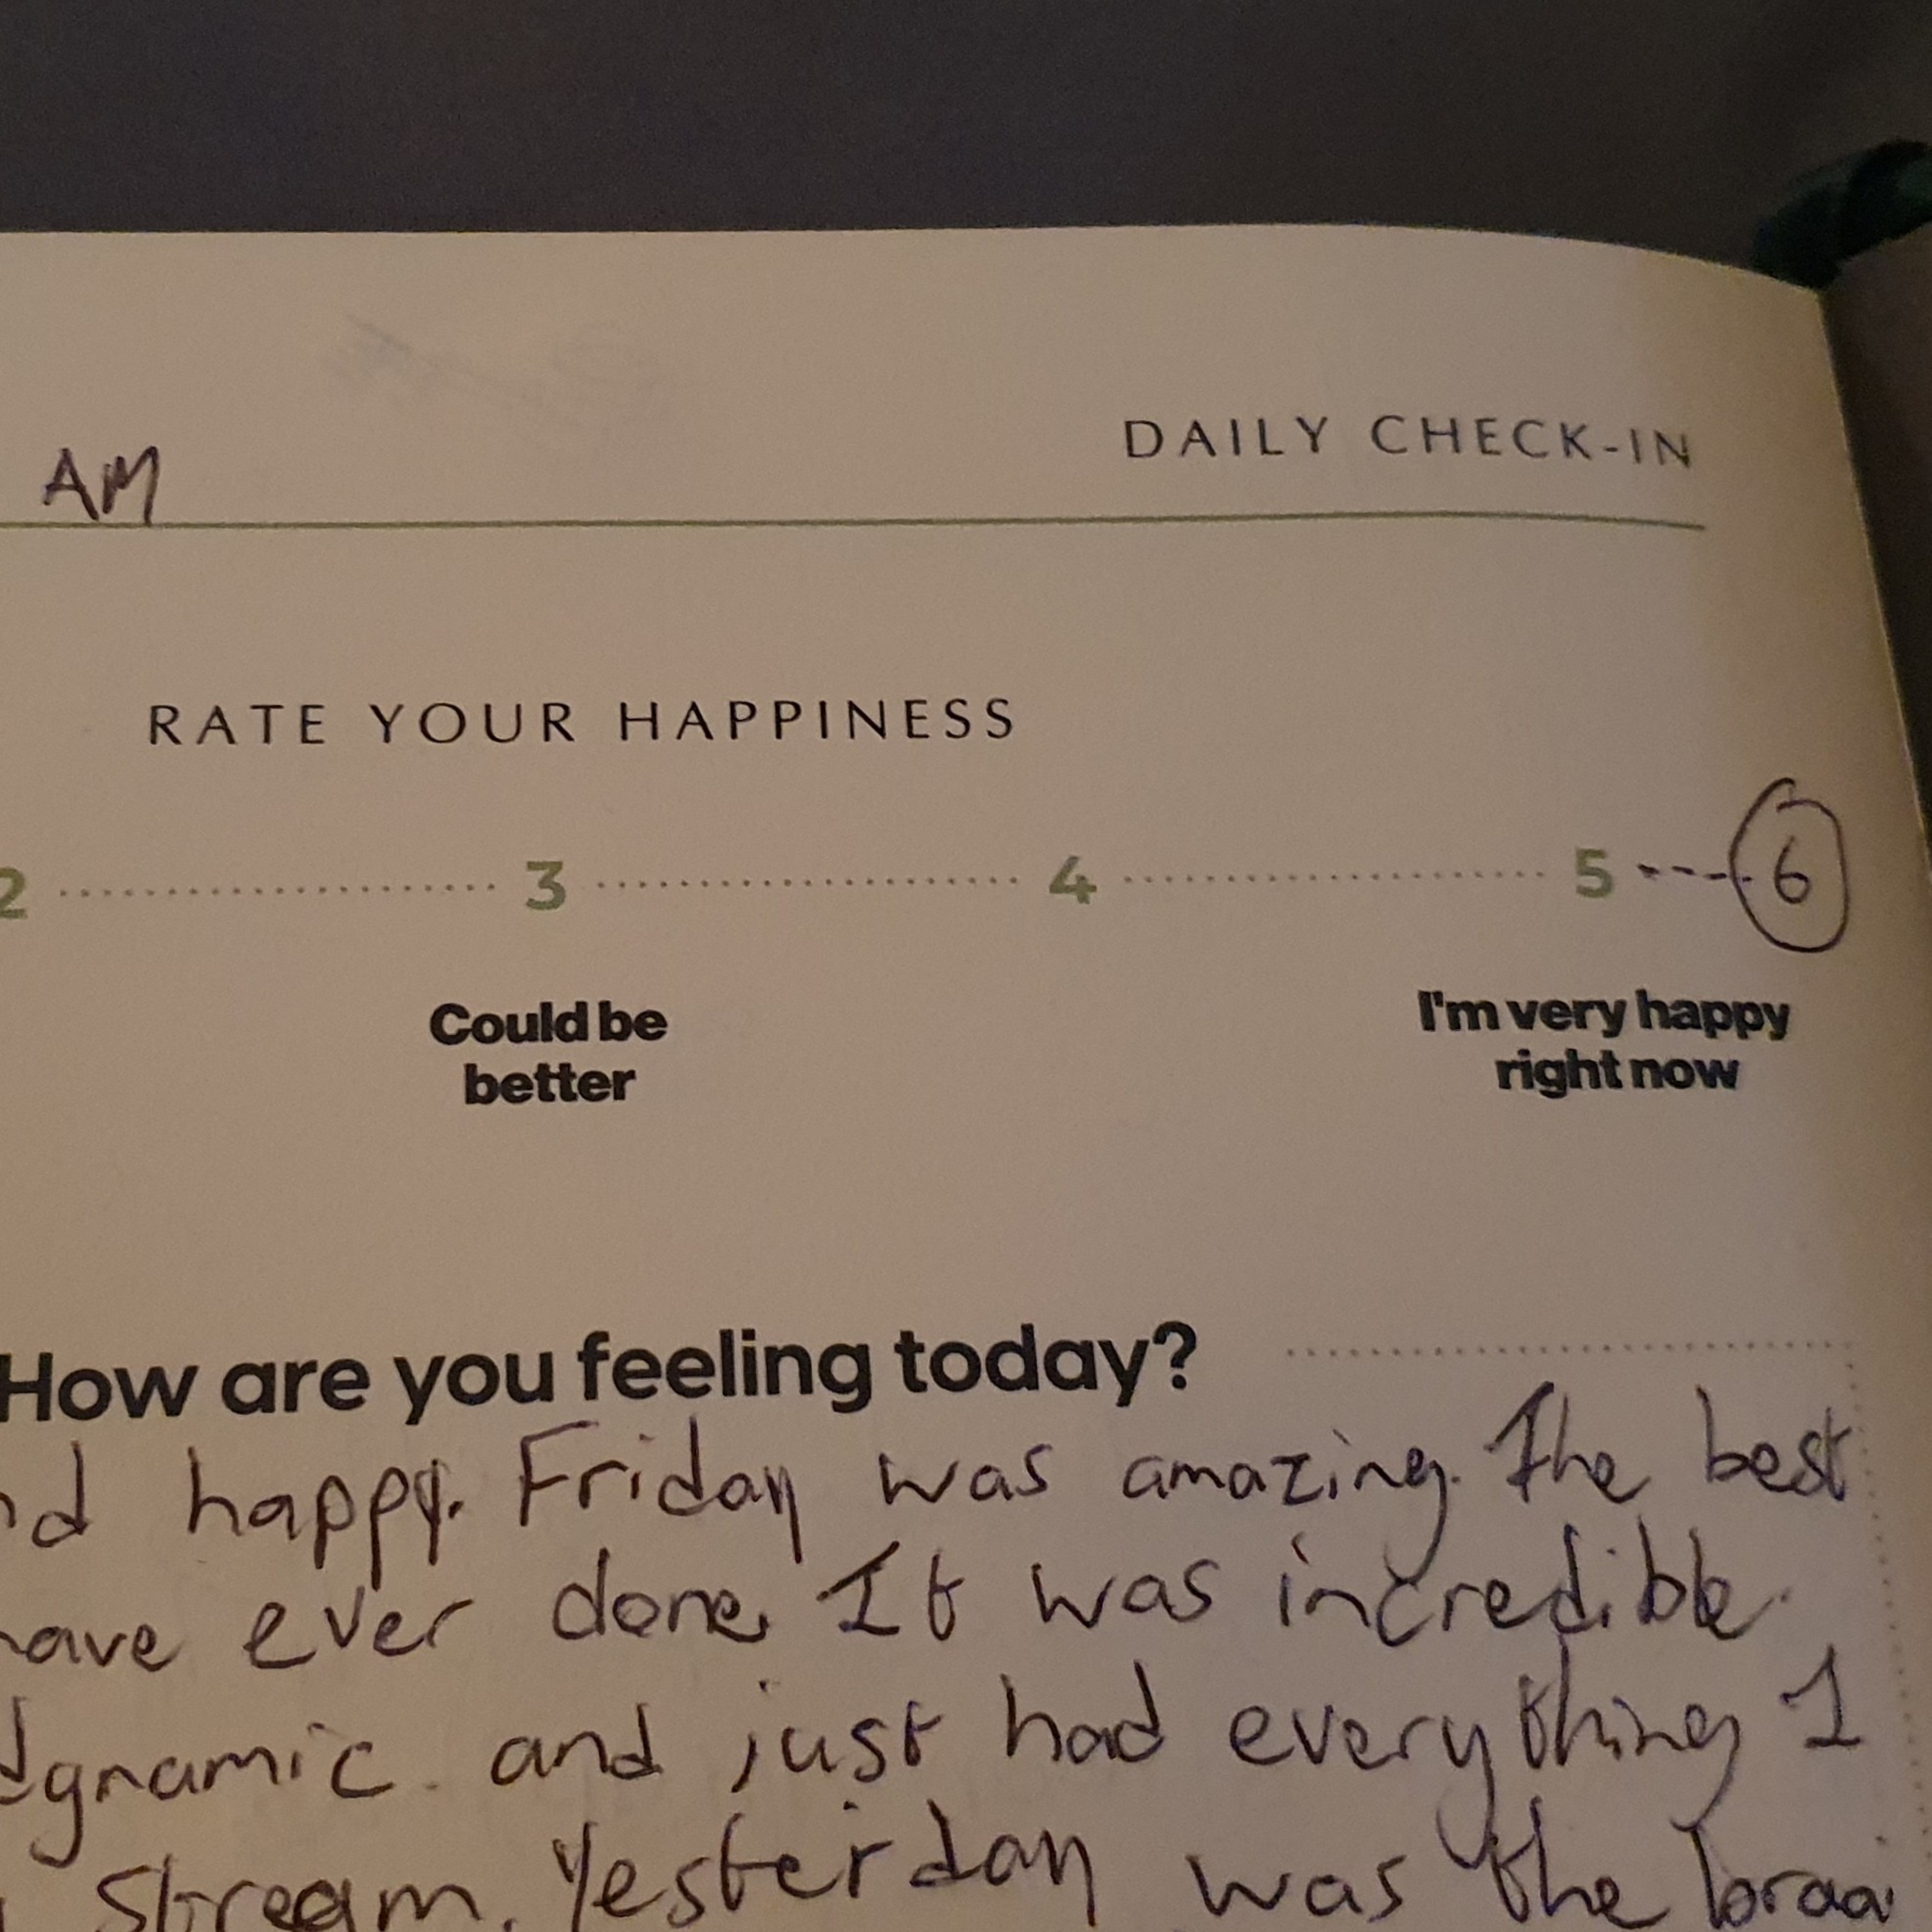 AM
DAILY CHECK-IN
RATE YOUR HAPPINESS
2 3 4 5 --- 6
Could be
better
I'm very happy
right now
How are you feeling today?
nd happy. Friday was amazing. The best
have ever done. It was incredible.
dynamic and just had everything I
stream. Yesterday was the braai